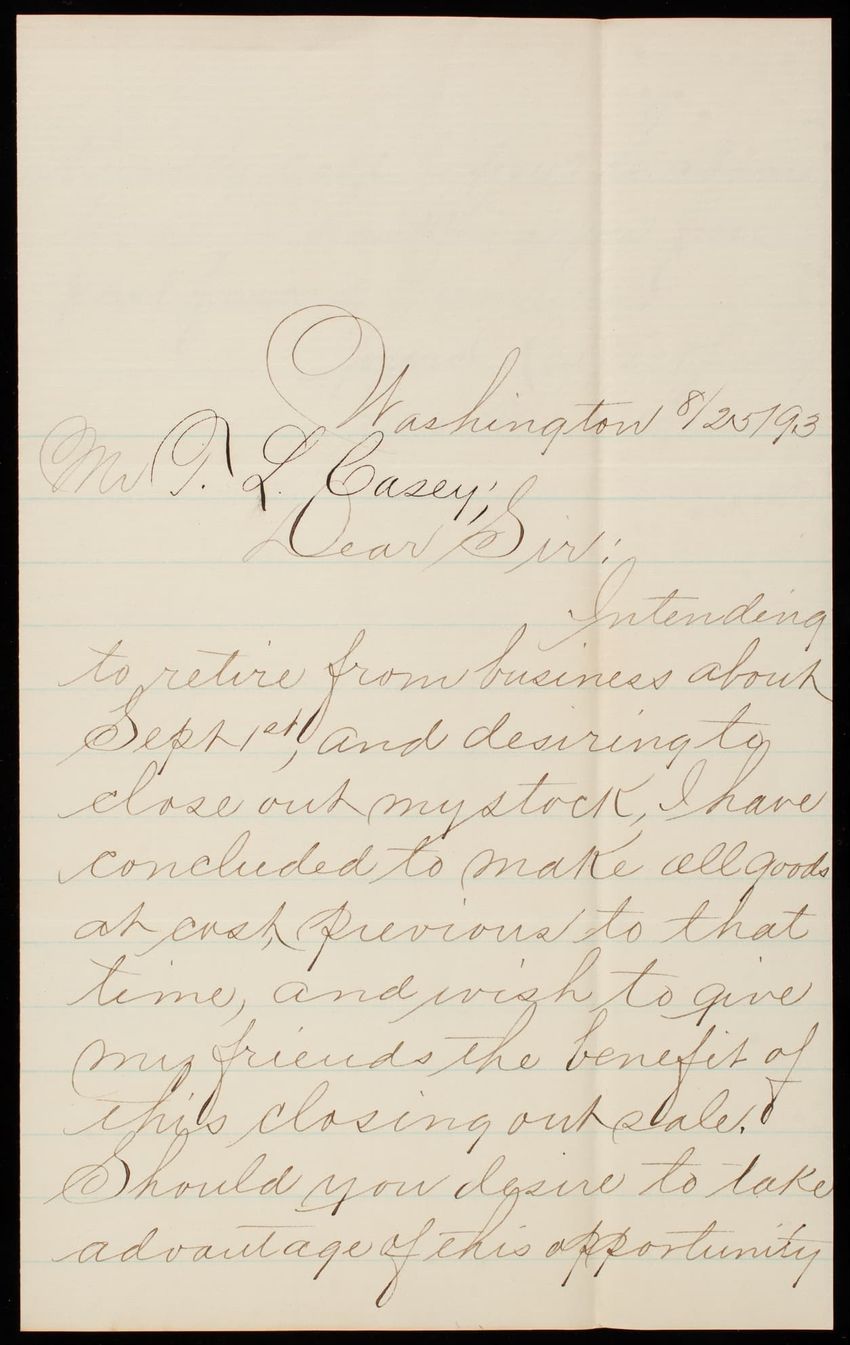 Washington 8/25/93
Mr T. L. Casey;
Dear Sir:
Intending
to retire from business about
Sept 1st, and desiring to
close out my stock, I have
concluded to make all goods
at cost, previous to that
time, and wish to give
my friends the benefit of
this closing out sale.
Should you desire to take
advantage of this opportunity